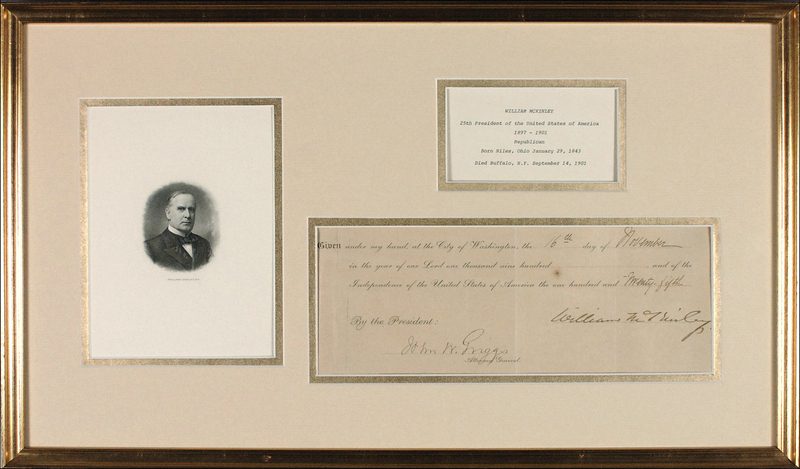 WILLIAM MCKINLEY
25th President of the United States of America
1897 - 1901
Republican
Born Niles, Ohio January 29, 1843
Died Buffalo, N.Y. September 14, 1901
Given under my hand, at the City of Washington, the 16th day of November
in the year of our Lord one thousand nine hundred , and of the
Independence of the United States of America the one hundred and twenty-fifth.
By the President:
William McKinley
John W. Griggs
Attorney General.